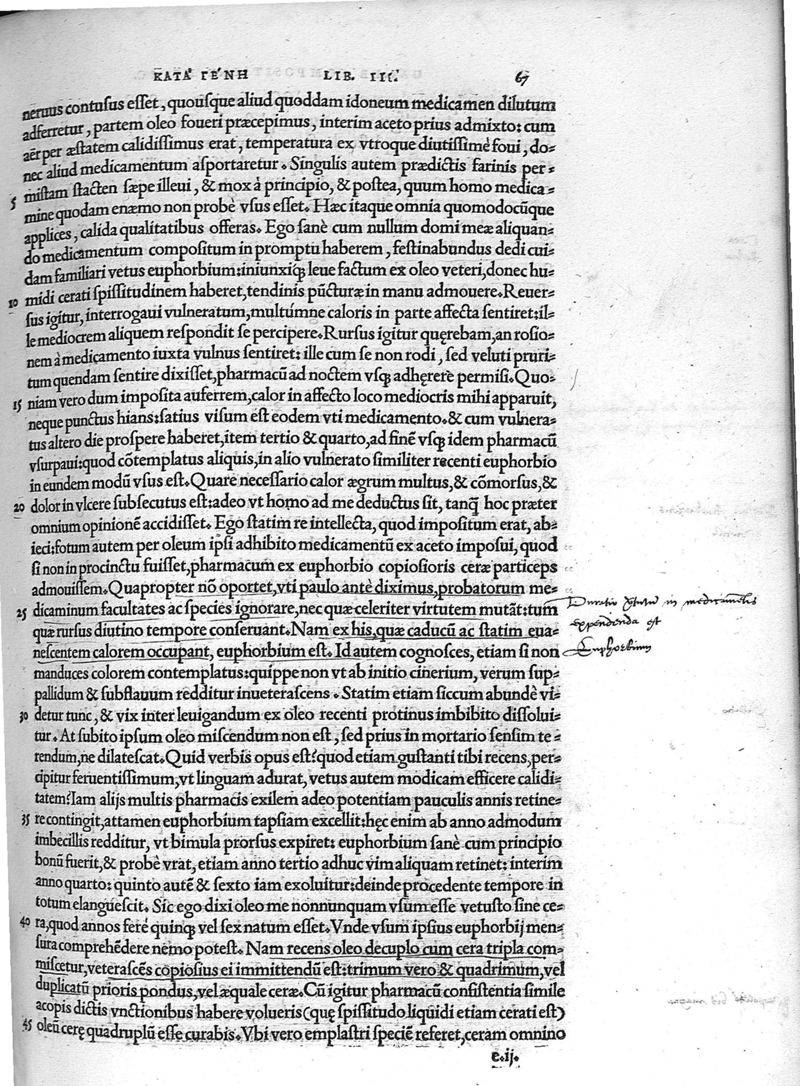 ΚΑΤᾺ ΓΈΝΗ LIB. III. 67
neruus contusus esset, quousque aliud quoddam idoneum medicamen dilutum
adferretur, partem oleo foueri præcepimus, interim aceto prius admixto: cum
aër per æstatem calidissimus erat, temperatura ex vtroque diutissimè foui, do=
nec aliud medicamentum asportaretur. Singulis autem prædictis farinis per=
5 mistam stacten sæpe illeui, & mox à principio, & postea, quum homo medica=
mine quodam enæmo non probè vsus esset. Hæc itaque omnia quomodocũque
applices, calida qualitatibus offeras. Ego sanè cum nullum domi meæ aliquan=
do medicamentum compositum in promptu haberem, festinabundus dedi cui=
dam familiari vetus euphorbium: iniunxiq; leue factum ex oleo veteri, donec hu=
10 midi cerati spissitudinem haberet, tendinis pũcturæ in manu admouere. Reuer=
sus igitur, interrogaui vulneratum, multúmne caloris in parte affecta sentiret: il=
le mediocrem aliquem respondit se percipere. Rursus igitur quęrebam, an rosio=
nem à medicamento iuxta vulnus sentiret: ille cum se non rodi, sed veluti pruri=
tum quendam sentire dixisset, pharmacũ ad noctem vsq; adhęrere permisi. Quo=
15 niam vero dum imposita auferrem, calor in affecto loco mediocris mihi apparuit,
neque punctus hians: satius visum est eodem vti medicamento. & cum vulnera=
tus altero die prospere haberet, item tertio & quarto, ad finẽ vsq; idem pharmacũ
vsurpaui: quod cõtemplatus aliquis, in alio vulnerato similiter recenti euphorbio
in eundem modũ vsus est. Quare necessario calor ægrum multus, & cõmorsus, &
20 dolor in vlcere subsecutus est: adeo vt homo ad me deductus sit, tanq̃ hoc præter
omnium opinionẽ accidisset. Ego statim re intellecta, quod impositum erat, ab=
ieci: fotum autem per oleum ipsi adhibito medicamentũ ex aceto imposui, quod
si non in procinctu fuisset, pharmacum ex euphorbio copiosioris ceræ particeps
admouissem. Quapropter nõ oportet, vti paulo antè diximus, probatorum me=
25 dicaminum facultates ac species ignorare, nec quæ celeriter virtutem mutãt: tum
quæ rursus diutino tempore conseruant. Nam ex his, quæ caducũ ac statim eua=
nescentem calorem occupant, euphorbium est. Id autem cognosces, etiam si non
manduces colorem contemplatus: quippe non vt ab initio cinerium, verum sup=
pallidum & subflauum redditur inueterascens. Statim etiam siccum abundè vi=
30 detur tunc, & vix inter leuigandum ex oleo recenti protinus imbibito dissolui=
tur. At subito ipsum oleo miscendum non est, sed prius in mortario sensim te=
rendum, ne dilatescat. Quid verbis opus est? quod etiam gustanti tibi recens, per=
cipitur feruentissimum, vt linguam adurat, vetus autem modicam efficere calidi=
tatem? Iam alijs multis pharmacis exilem adeo potentiam pauculis annis retine=
35 re contingit, attamen euphorbium tapsiam excellit: hęc enim ab anno admodum
imbecillis redditur, vt bimula prorsus expiret: euphorbium sanè cum principio
bonũ fuerit, & probè vrat, etiam anno tertio adhuc vim aliquam retinet: interim
anno quarto: quinto autẽ & sexto iam exoluitur: deinde procedente tempore in
totum elanguescit. Sic ego dixi oleo me nonnunquam vsum esse vetusto sine ce=
40 ra, quod annos ferè quinq; vel sex natum esset. Vnde vsum ipsius euphorbij men=
sura comprehẽdere nemo potest. Nam recens oleo decuplo cum cera tripla com=
miscetur, veterascẽs copiosius ei immittendũ est: trimum vero & quadrimum, vel
duplicatũ prioris pondus, vel æquale ceræ. Cũ igitur pharmacũ consistentia simile
acopis dictis vnctionibus habere volueris (quę spissitudo liqũidi etiam cerati est)
45 oleũ cerę quadruplũ esse curabis. Vbi vero emplastri speciẽ referet, ceram omnino
e.ij.
in medicamẽtis
expendenda est
Euphorbium